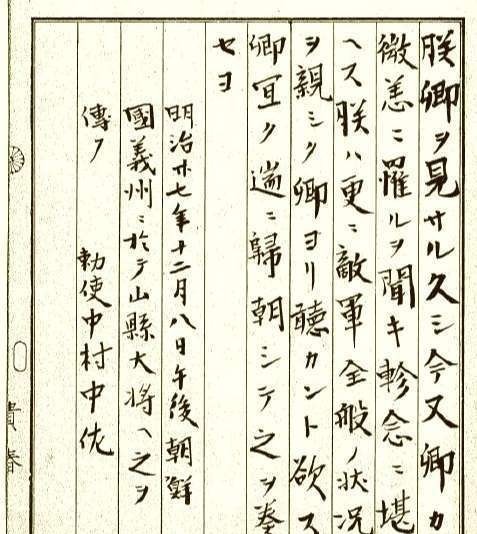 朕卿ヲ見サル久シ今又卿カ
微恙ニ罹ルヲ聞キ軫念ニ堪
ヘス朕ハ更ニ敵軍全般ノ状况
ヲ親シク卿ヨリ聴カント欲ス
卿宜ク遄ニ歸朝シテ之ヲ奏
セヨ
明治廿七年十二月八日午後朝鮮
國義州ニ於テ山縣大将ヘ之ヲ
傳フ　勅使中村中佐